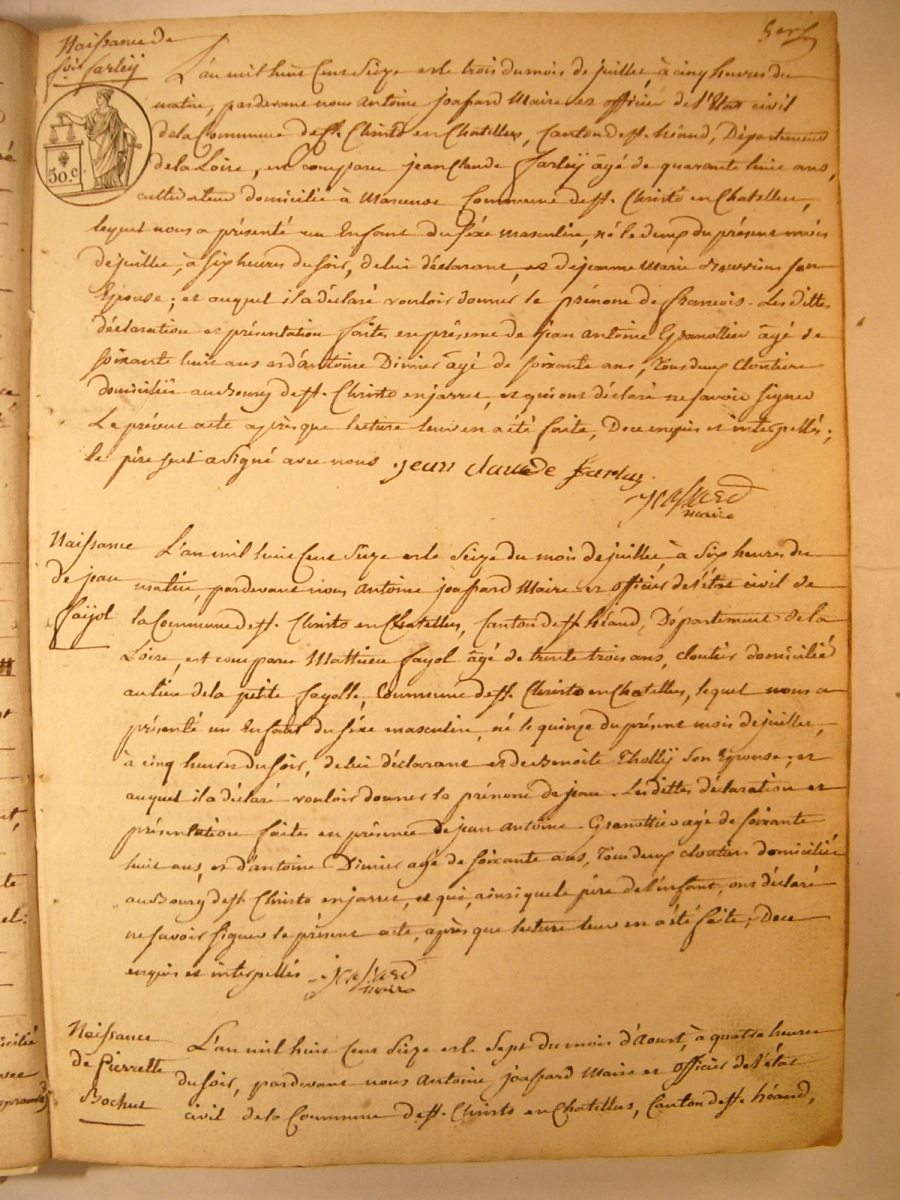 Naissance de
fois farley
50. c
L'an mil huit Cent Seize et le trois du mois de juillet, à cinq heures du
matin, pardevant nous Antoine joassard Maire et officier de l'Etat civil
de la Commune de St. Christo en Chatellus, Canton de St. héand, Département
de la Loire, est comparu jean Claude farley âgé de quarante huit ans,
cultivateur domicilié à Commune de St. Christo en Chatellus,
lequel nous a présenté un Enfant du séxe masculin, né le deux du présent mois
de juillet, à six heures du soir, de lui déclarant, et de jeanne Marie son
Epouse; et auquel il a déclaré vouloir donner le prénom de francois. Les dittes
déclaration et présentation faites en présence de jean Antoine Granottier âgé de
soixante huit ans et d'antoine Dimier âgé de soixante ans, Tous deux cloutiers
domiciliés au Bourg de St. Christo en jarret, et qui ont déclaré ne savoir signer
Le présent acte après que lecture leur en a été faite, De ce enquis et interpellés;
le père seul a signé avec nous jean claude farlay
joassard
maire
Naissance
de jean
fayol
L'an mil huit Cent Seize et le Seize du mois de juillet à Six heures du
matin, pardevant nous Antoine joassard Maire et officier de l'état civil de
la Commune de St. Christo en Chatellus, Canton de St. héand, Département de la
Loire, est comparu Mathieu fayol âgé de trente trois ans, cloutier domicilié
au lieu de la petite fayolle, Commune de St. Christo en Chatellus, lequel nous a
présenté un Enfant du séxe masculin, né le quinze du présent mois de juillet,
à cinq heures du soir, de lui déclarant et de Benoite Tholly Son Epouse; et
auquel il a déclaré vouloir donner le prénom de jean. Les dittes déclaration et
présentation faites en présence de jean Antoine Granottier âgé de soixante
huit ans, et d'antoine Dimier agé de soixante ans, Tous deux cloutiers domiciliés
au Bourg de St. Christo en jarret, et qui, ainsi que le père de l'enfant, ont déclaré
ne savoir signer le présent acte, après que lecture leur en a été faite; De ce
enquis et interpellés joassard
maire
Naissance
de Pierrette
Bochut
L'an mil huit Cent Seize et le Sept du mois d'Aoust, à quatre heures
du soir, pardevant nous Antoine joassard Maire et officier de l'état
civil de la Commune de St. Christo en Chatellus, Canton de St. héand,